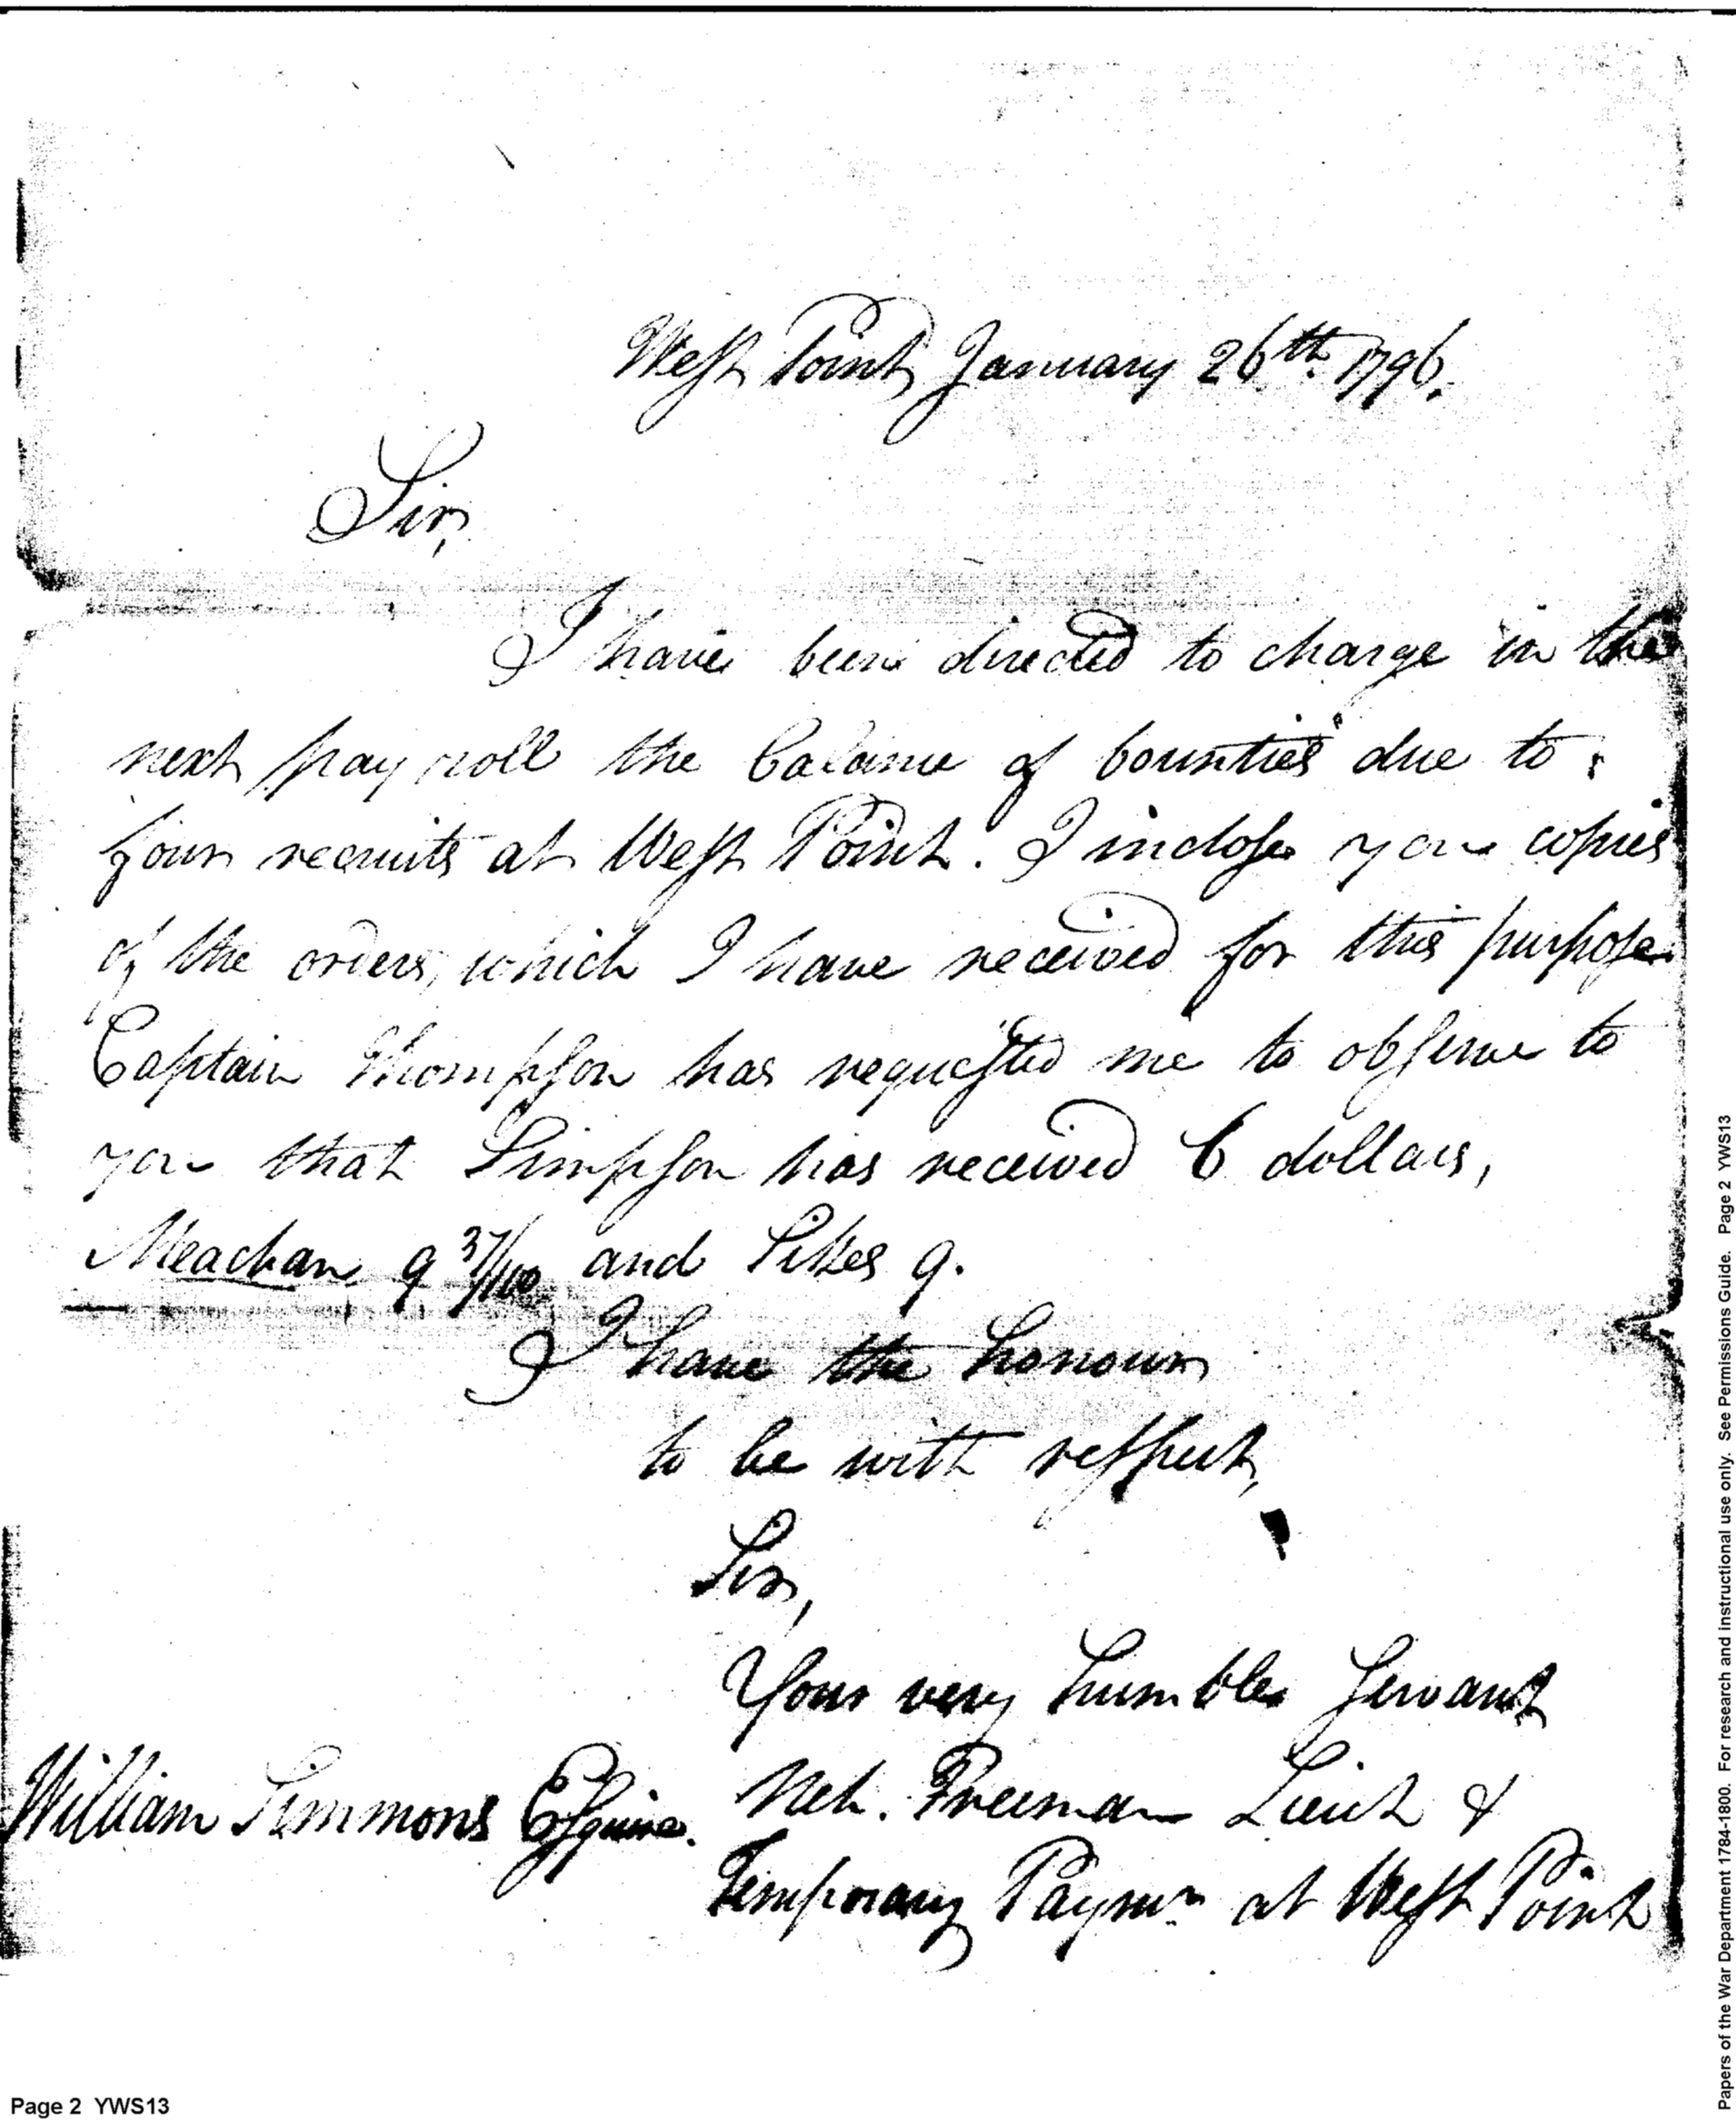 West Point January 26th. 1796.
Sir,
I have been directed to charge in the
next pay roll the balance of bounties due to
four recruits at West Point. I inclose you copies
of the orders, which I have received for this purpose.
Captain Thompson has requested me to observe to
you that Simpson has received 6 dollars,
Meachan 9 37/100 and Sikes 9.
I have the honour
to be with respect,
Sir,
Your very humble servant
Neh. Freeman Lieut &
Temporary Paymr. at West Point
William Simmons Esquire.
Page 2 YWS13
Papers of the War Department 1784-1800. For research and instructional use only. See Permissions Guide. Page 2 YWS13